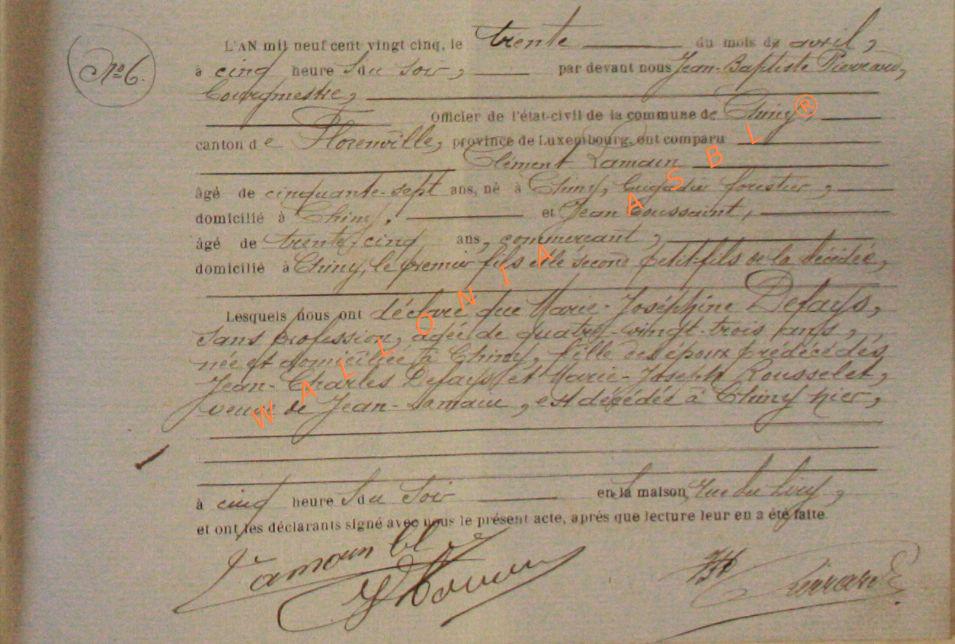 No 6.
L'AN mil neuf cent vingt cinq, le trente du mois de avril,
à cinq heures du soir, par devant nous Jean-Baptiste Pierrard,
bourgmestre,
Officier de l'état-civil de la commune de Chiny,
canton de Florenville, province de Luxembourg, ont comparu
Clément Lamain
âgé de cinquante-sept ans, né à Chiny, brigadier forestier,
domicilié à Chiny, et Jean Toussaint,
âgé de trente-cinq ans, commerçant,
domicilié à Chiny, le premier fils et le second petit-fils de la décédée,
Lesquels nous ont déclaré que Marie-Joséphine Defays,
sans profession, âgée de quatre-vingt-trois ans,
née et domiciliée à Chiny, fille des époux prédécédés
Jean-Charles Defays et Marie-Joseph Rousselet,
veuve de Jean Lamain, est décédée à Chiny hier,
à cinq heures du soir en la maison, rue du
et ont les déclarants signé avec nous le présent acte, après que lecture leur en a été faite.
Lamain Cl
JB Pierrard
WALLONIA ASBL ®